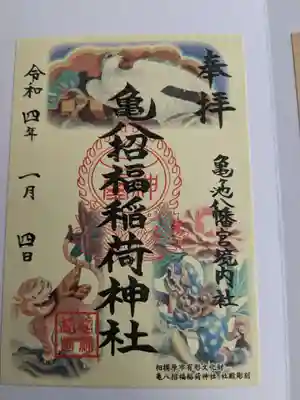 奉拝
亀池八幡宮境内社
亀八招福稲荷神社
令和四年 一月 四日
相模原市有形文化財
亀八招福稲荷神社 社殿彫刻